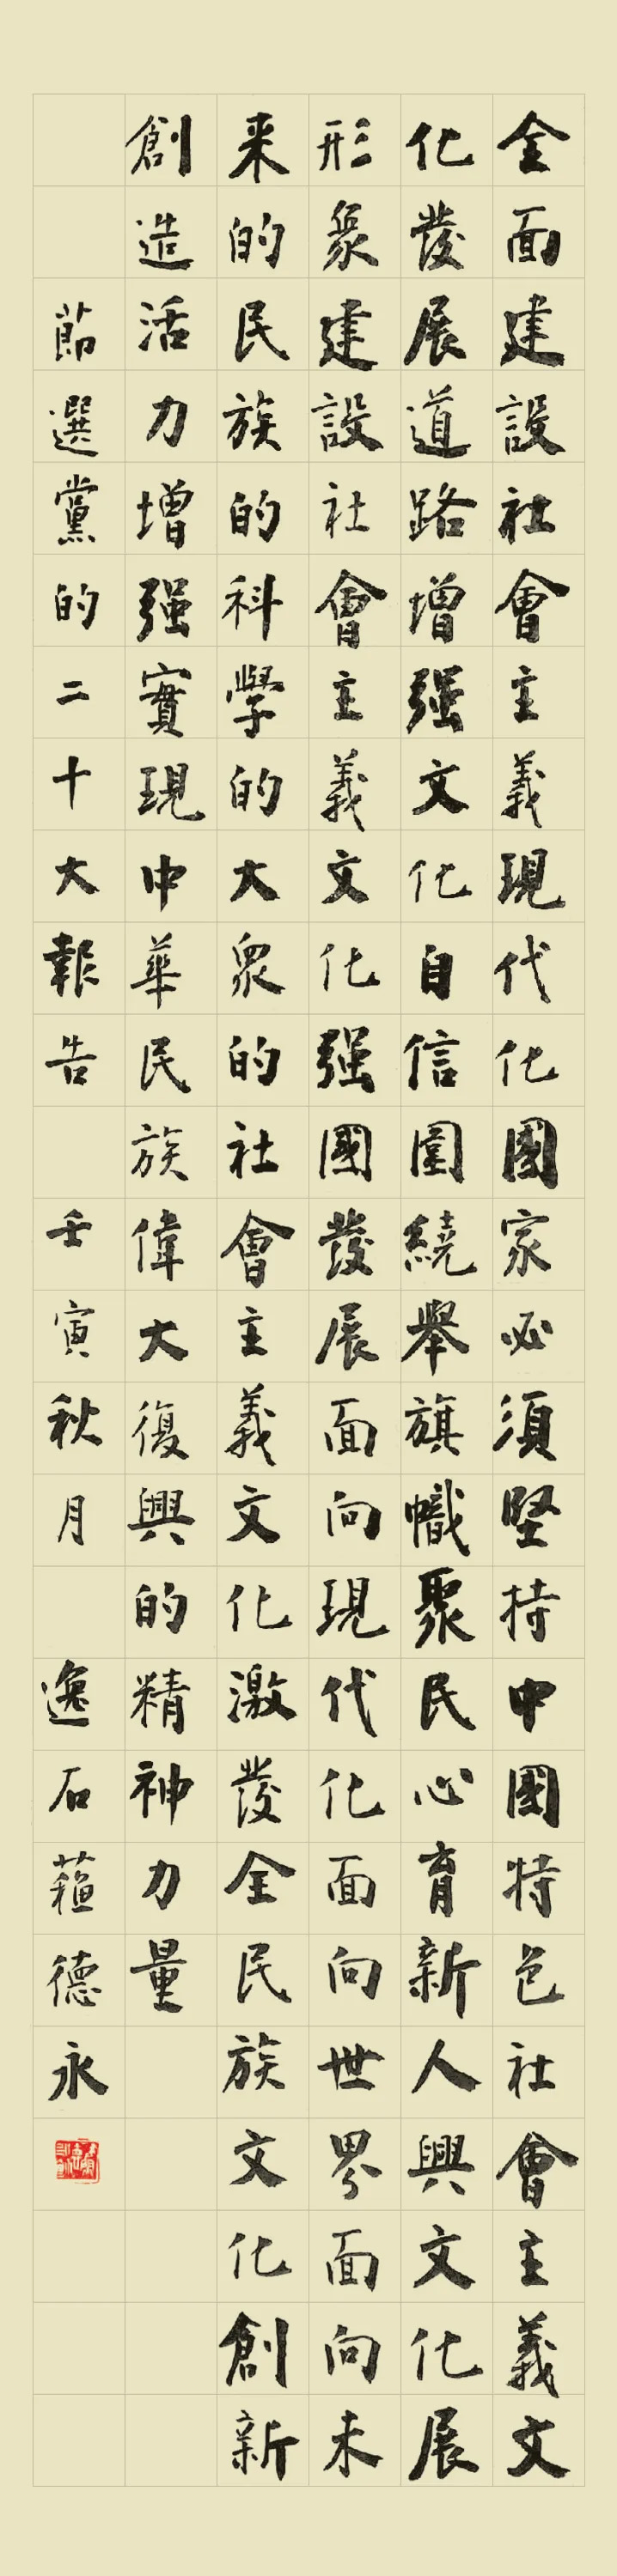 全面建設社會主義現代化國家必須堅持中國特色社會主義文
化發展道路增强文化自信圍繞舉旗幟聚民心育新人興文化展
形象建設社會主義文化强國發展面向現代化面向世界面向未
来的民族的科學的大衆的社會主義文化激發全民族文化創新
創造活力增强實現中華民族偉大復興的精神力量
節選黨的二十大報告 壬寅秋月 逸石蘓德永